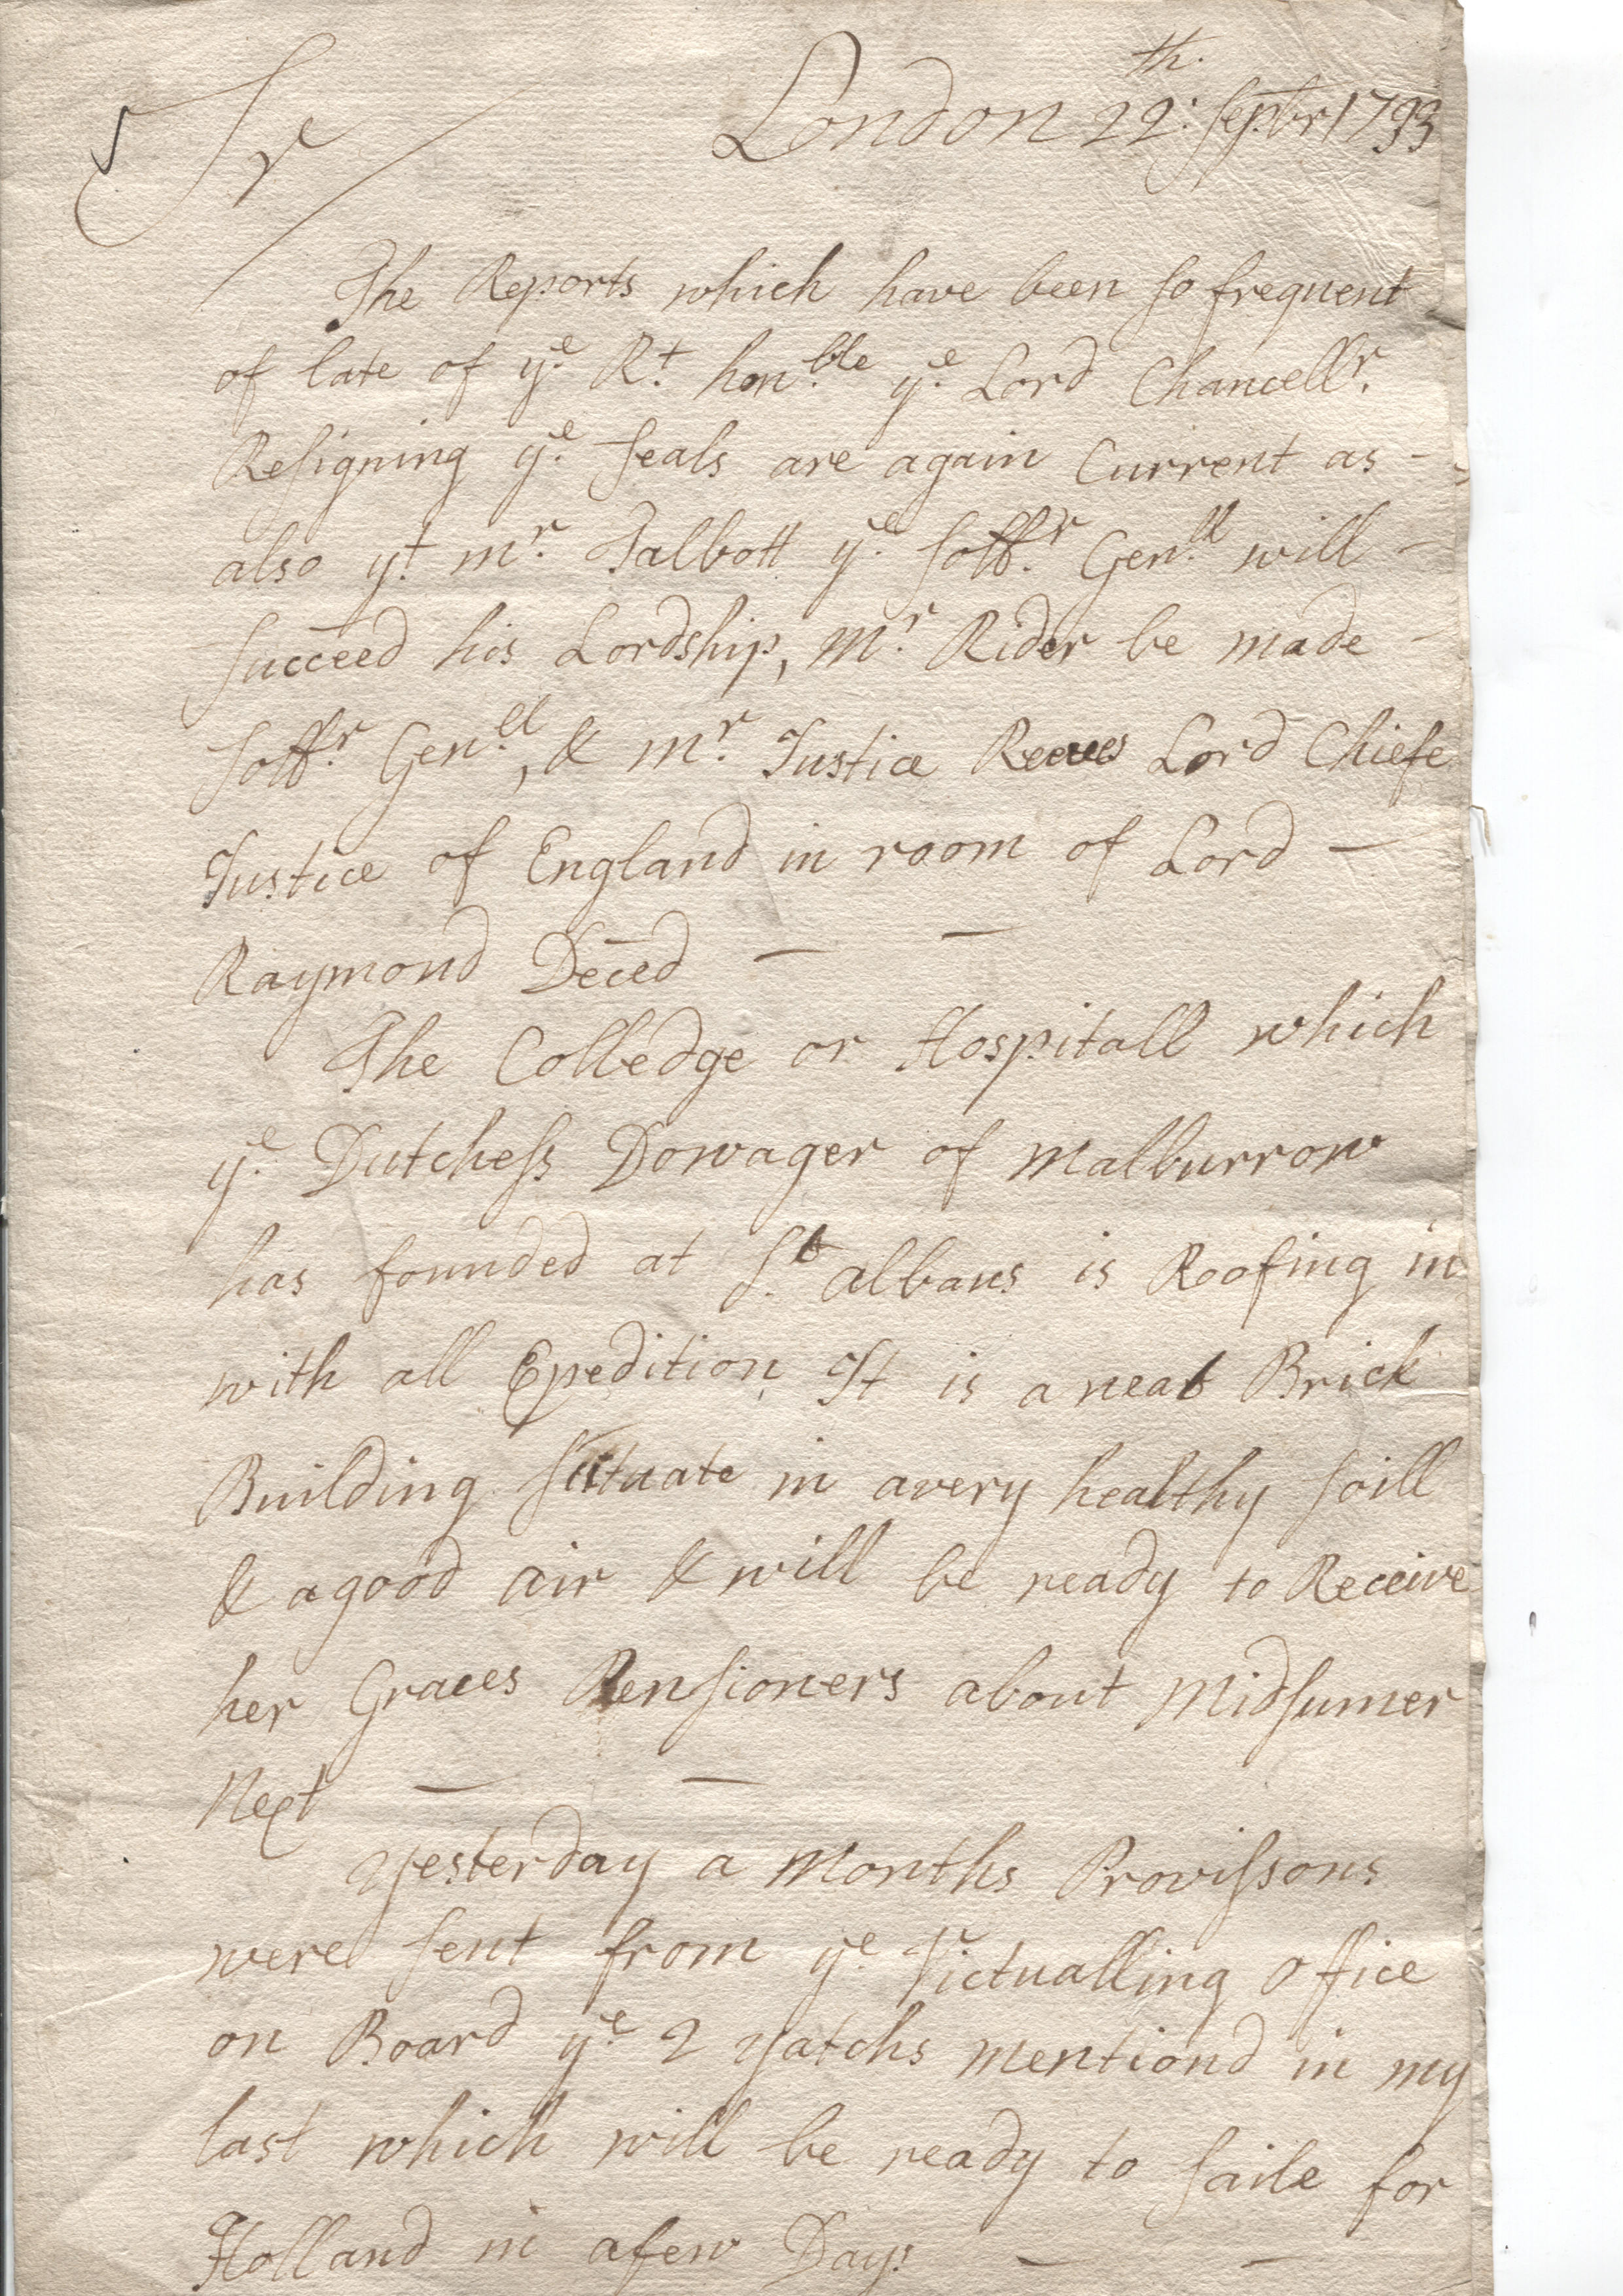 Sr London 22th: Septbr 1733
The Reports which have been so frequent
of late of ye Rt. honble ye Lord Chancellr.
Resigning ye Seals are again Current as -
also yt mr. Talbott ye Sollr. Genll will -
Succeed his Lordship, Mr. Rider be made -
Sollr. Genll, & mr. Justice Reeves Lord Chiefe
Justice of England in room of Lord -
Raymond Deced - -
The Colledge or Hospitall which
ye Dutchess Dowager of Malburrow
has founded at St. albans is Roofing in
with all Expedition It is a neat Brick
Building Situate in a very healthy soill
& a good air & will be ready to Receive
her Graces Pensioners about Midsumer
Next - -
Yesterday a Months Provissons
were sent from ye Victualling Office
on Board ye 2 yatchs mentiond in my
last which will be ready to saile for
Holland in a few Days - -